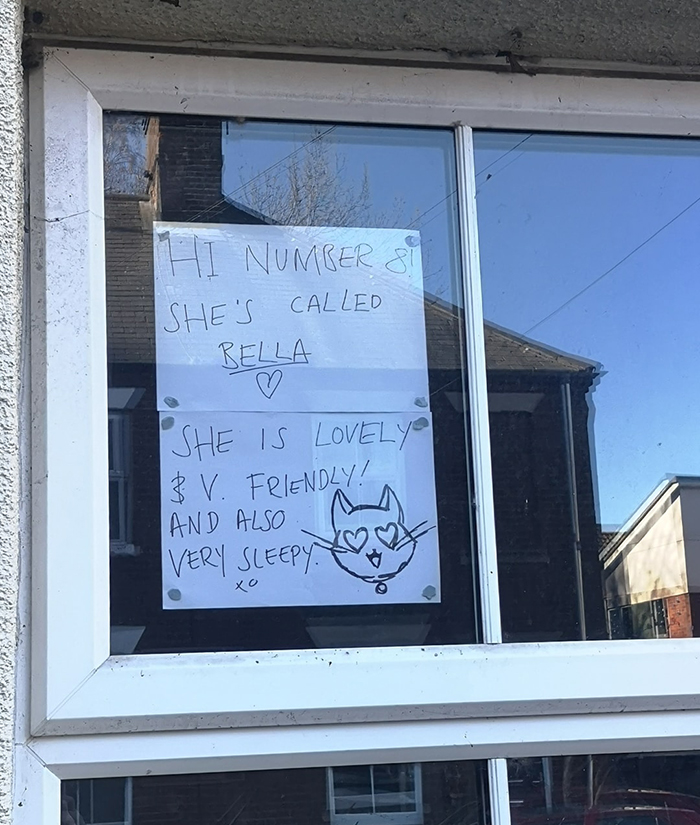 HI NUMBER 8!
SHE'S CALLED
BELLA
SHE IS LOVELY
& V. FRIENDLY!
AND ALSO
VERY SLEEPY.
xo